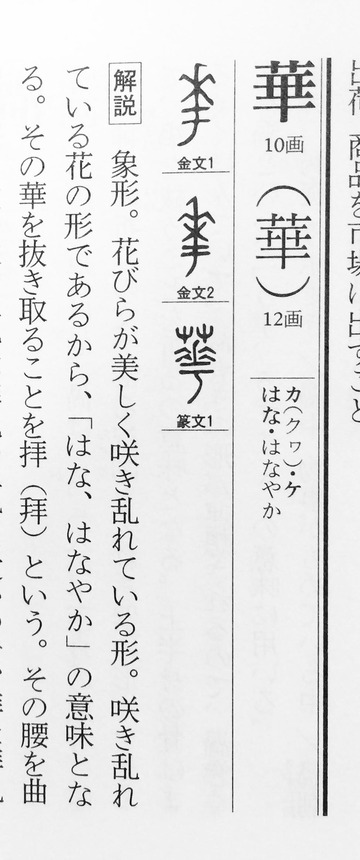 出荷 商品を市場に出すこと
華 10画 (華) 12画
カ(クヮ)・ケ
はな・はなやか
金文1
金文2
篆文1
解説 象形。花びらが美しく咲き乱れている形。咲き乱れ
ている花の形であるから、「はな、はなやか」の意味とな
る。その華を抜き取ることを拝(拜)という。その腰を曲